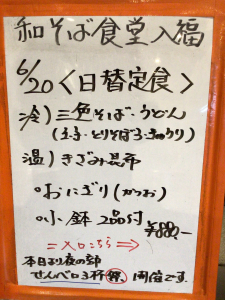 和そば食堂入福
6/20 <日替定食>
冷)三色そば・うどん
(玉子・とりそぼろ・きゅうり)
温)きざみ昆布
○おにぎり(かつお)
○小鉢 2品付
¥880-
=入口こちら⇒
本日より夜の部
せんべロ3杯 開宿です。